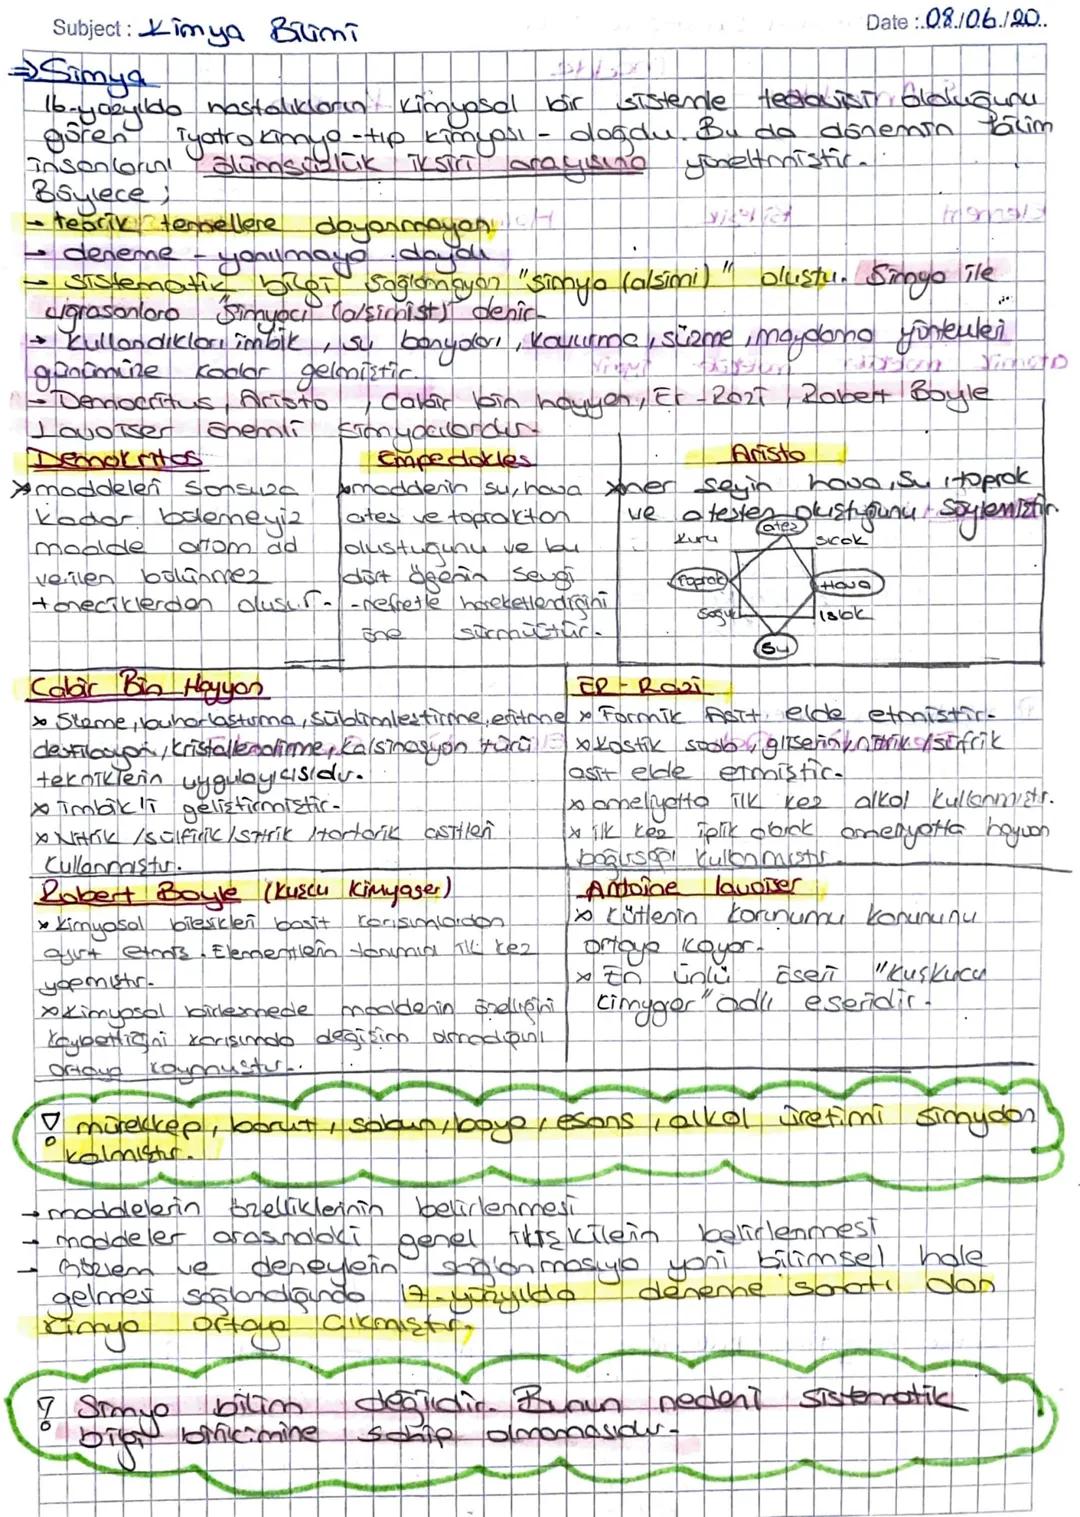 Subject: Kimya Bilimi
Date: 08/06/20..
⇒Simya
16. yüzyılda hastalıkların kimyasal bir sistemle tedavisin olduğunu
gören iyatrokimya - tıp kimyası - doğdu. Bu da dönemin bilim
insanlarını ölümsüzlük iksiri arayışına yöneltmiştir.
Böylece;
→ teorik temellere dayanmayan
→ deneme - yanılmaya dayalı
→ sistematik bilgi sağlamayan "simya (alşimi)" oluştu. Simya ile
uğraşanlara "Simyacı (alşimist)" denir.
→ Kullandıkları imbik, su banyoları, kavurma, süzme, mayalama yöntemleri
günümüze kadar gelmiştir.
→ Democritus, Aristo, Cabir bin hayyan, Er-Razi, Robert Boyle
Lavoiser önemli simyacılardır.
Demokritos
× maddeleri sonsuza
kadar bölemeyiz
madde atom ad
verilen bölünmez
taneciklerden oluşur.
Empedokles
× maddenin su, hava
ateş ve topraktan
oluştuğunu ve bu
dört öğenin sevgi
-nefretle hareketlendiğini
öne sürmüştür.
Aristo
× her şeyin hava, su, toprak
ve ateşten oluştuğunu söylemiştir
ateş
Kuru
sıcak
Toprak
Hava
Soğuk
Islak
Su
Cabir Bin Hayyan
× Süzme, buharlaştırma, süblimleştirme, eritme
destilasyon, kristallendirme, kalsinasyon türü
tekniklerin uygulayıcısıdır.
× imbik'i geliştirmiştir.
× Nitrik /sülfirik/sitrik /tartarik asitleri
Kullanmıştır.
ER - Razi
× Formik Asit elde etmiştir.
× kostik soda, gliserin, nitrik /sülfirik
asit elde etmiştir.
× ameliyatta ilk kez alkol kullanmıştır.
× ilk kez iplik olarak ameliyatta hayvan
bağırsağı kullanmıştır.
Robert Boyle (Kuşcu Kimyager)
× Kimyasal bileşikleri basit karışımlardan
ayırt etmiş. Elementlerin tanımını ilk kez
yapmıştır.
× Kimyasal birleşmede maddenin özelliğini
kaybettiğini karışımda değişim olmadığını
ortaya koymuştur.
Antoine lavoiser
× Kütlenin korunumu kanununu
ortaya koyar.
× En ünlü Eseri "Kuşkucu
kimyager" adlı eseridir.
! mürekkep, barut, sabun, boya, esans, alkol üretimi simyadan
kalmıştır.
→ maddelerin özelliklerinin belirlenmesi
→ maddeler arasındaki genel ilişkilerin belirlenmesi
→ Gözlem ve deneylerin sağlanmasıyla yani bilimsel hale
gelmesi sağlandığında 17. yüzyılda deneme sanatı olan
kimya ortaya çıkmıştır.
! Simya bilim değildir. Bunun nedeni sistematik
bilgi birikimine sahip olmamasıdır.